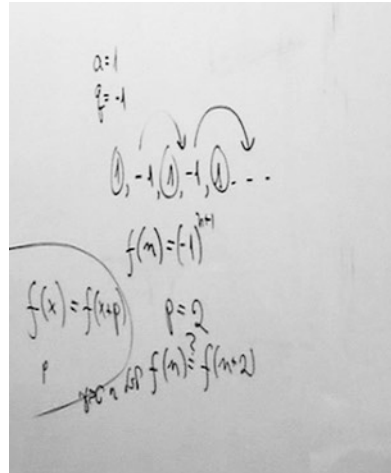 a=1
q=-1
1, -1, 1, -1, 1...
f(n)=(-1)^{n+1}
f(x)=f(x+p)
p=2
p
f(n)≟f(n+2)